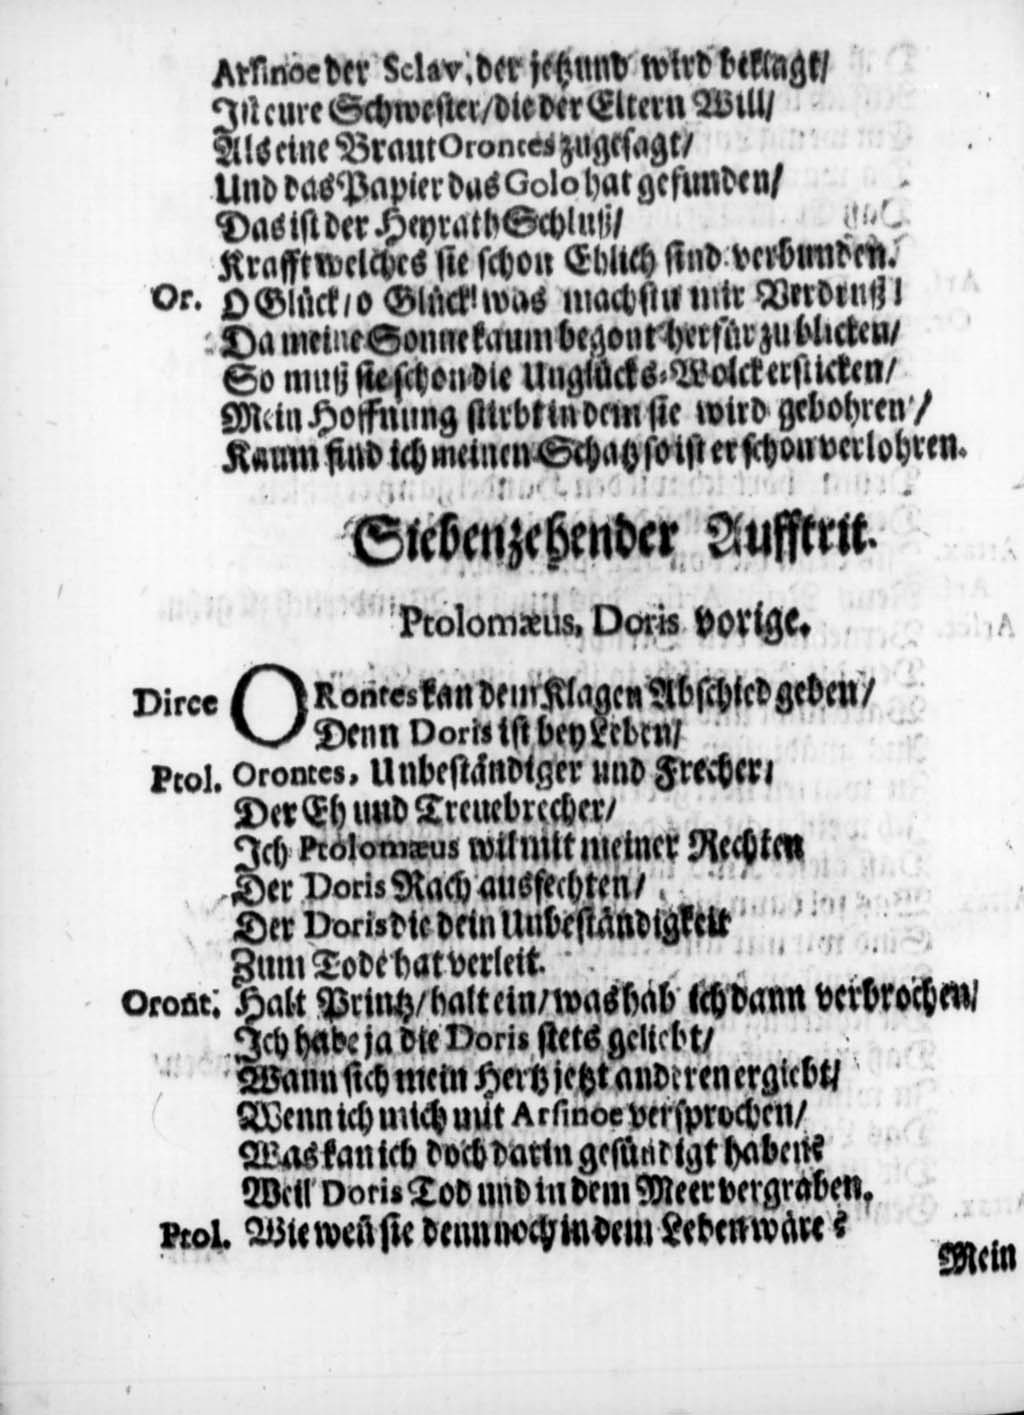 Arsinoe der Sclav, der jetzund wird beklagt/
Ist eure Schwester/ die der Eltern Will/
Als eine Braut Orontes zugesagt/
Und das Papier das Golo hat gefunden/
Das ist der Heyrath Schluß/
Krafft welches sie schon Ehlich sind verbunden.
Or. O Glück/ o Glück! was machstu mir Verdruß!
Da meine Sonne kaum begont herfür zu blicken/
So muß sie schon die Unglücks-Wolck ersticken/
Mein Hoffnung stirbt in dem sie wird gebohren/
Kaum find ich meinen Schatz so ist er schon verlohren.
Siebenzehender Aufftrit.
Ptolomæus, Doris vorige.
Dirce ORontes kan dem Klagen Abschied geben/
Denn Doris ist bey Leben/
Ptol. Orontes, Unbeständiger und Frecher/
Der Eh und Treuebrecher/
Ich Ptolomæus wil mit meiner Rechten
Der Doris Rach ausfechten/
Der Doris die dein Unbeständigkeit
Zum Tode hat verleit.
Oront. Halt Printz/ halt ein/ was hab ich dann verbrochen/
Ich habe ja die Doris stets geliebt/
Wann sich mein Hertz jetzt anderen ergiebt/
Wenn ich mich mit Arsinoe versprochen/
Was kan ich doch darin gesündigt haben?
Weil Doris Tod und in dem Meer vergraben.
Ptol. Wie weñ sie dennnoch in dem Leben wäre?
Mein